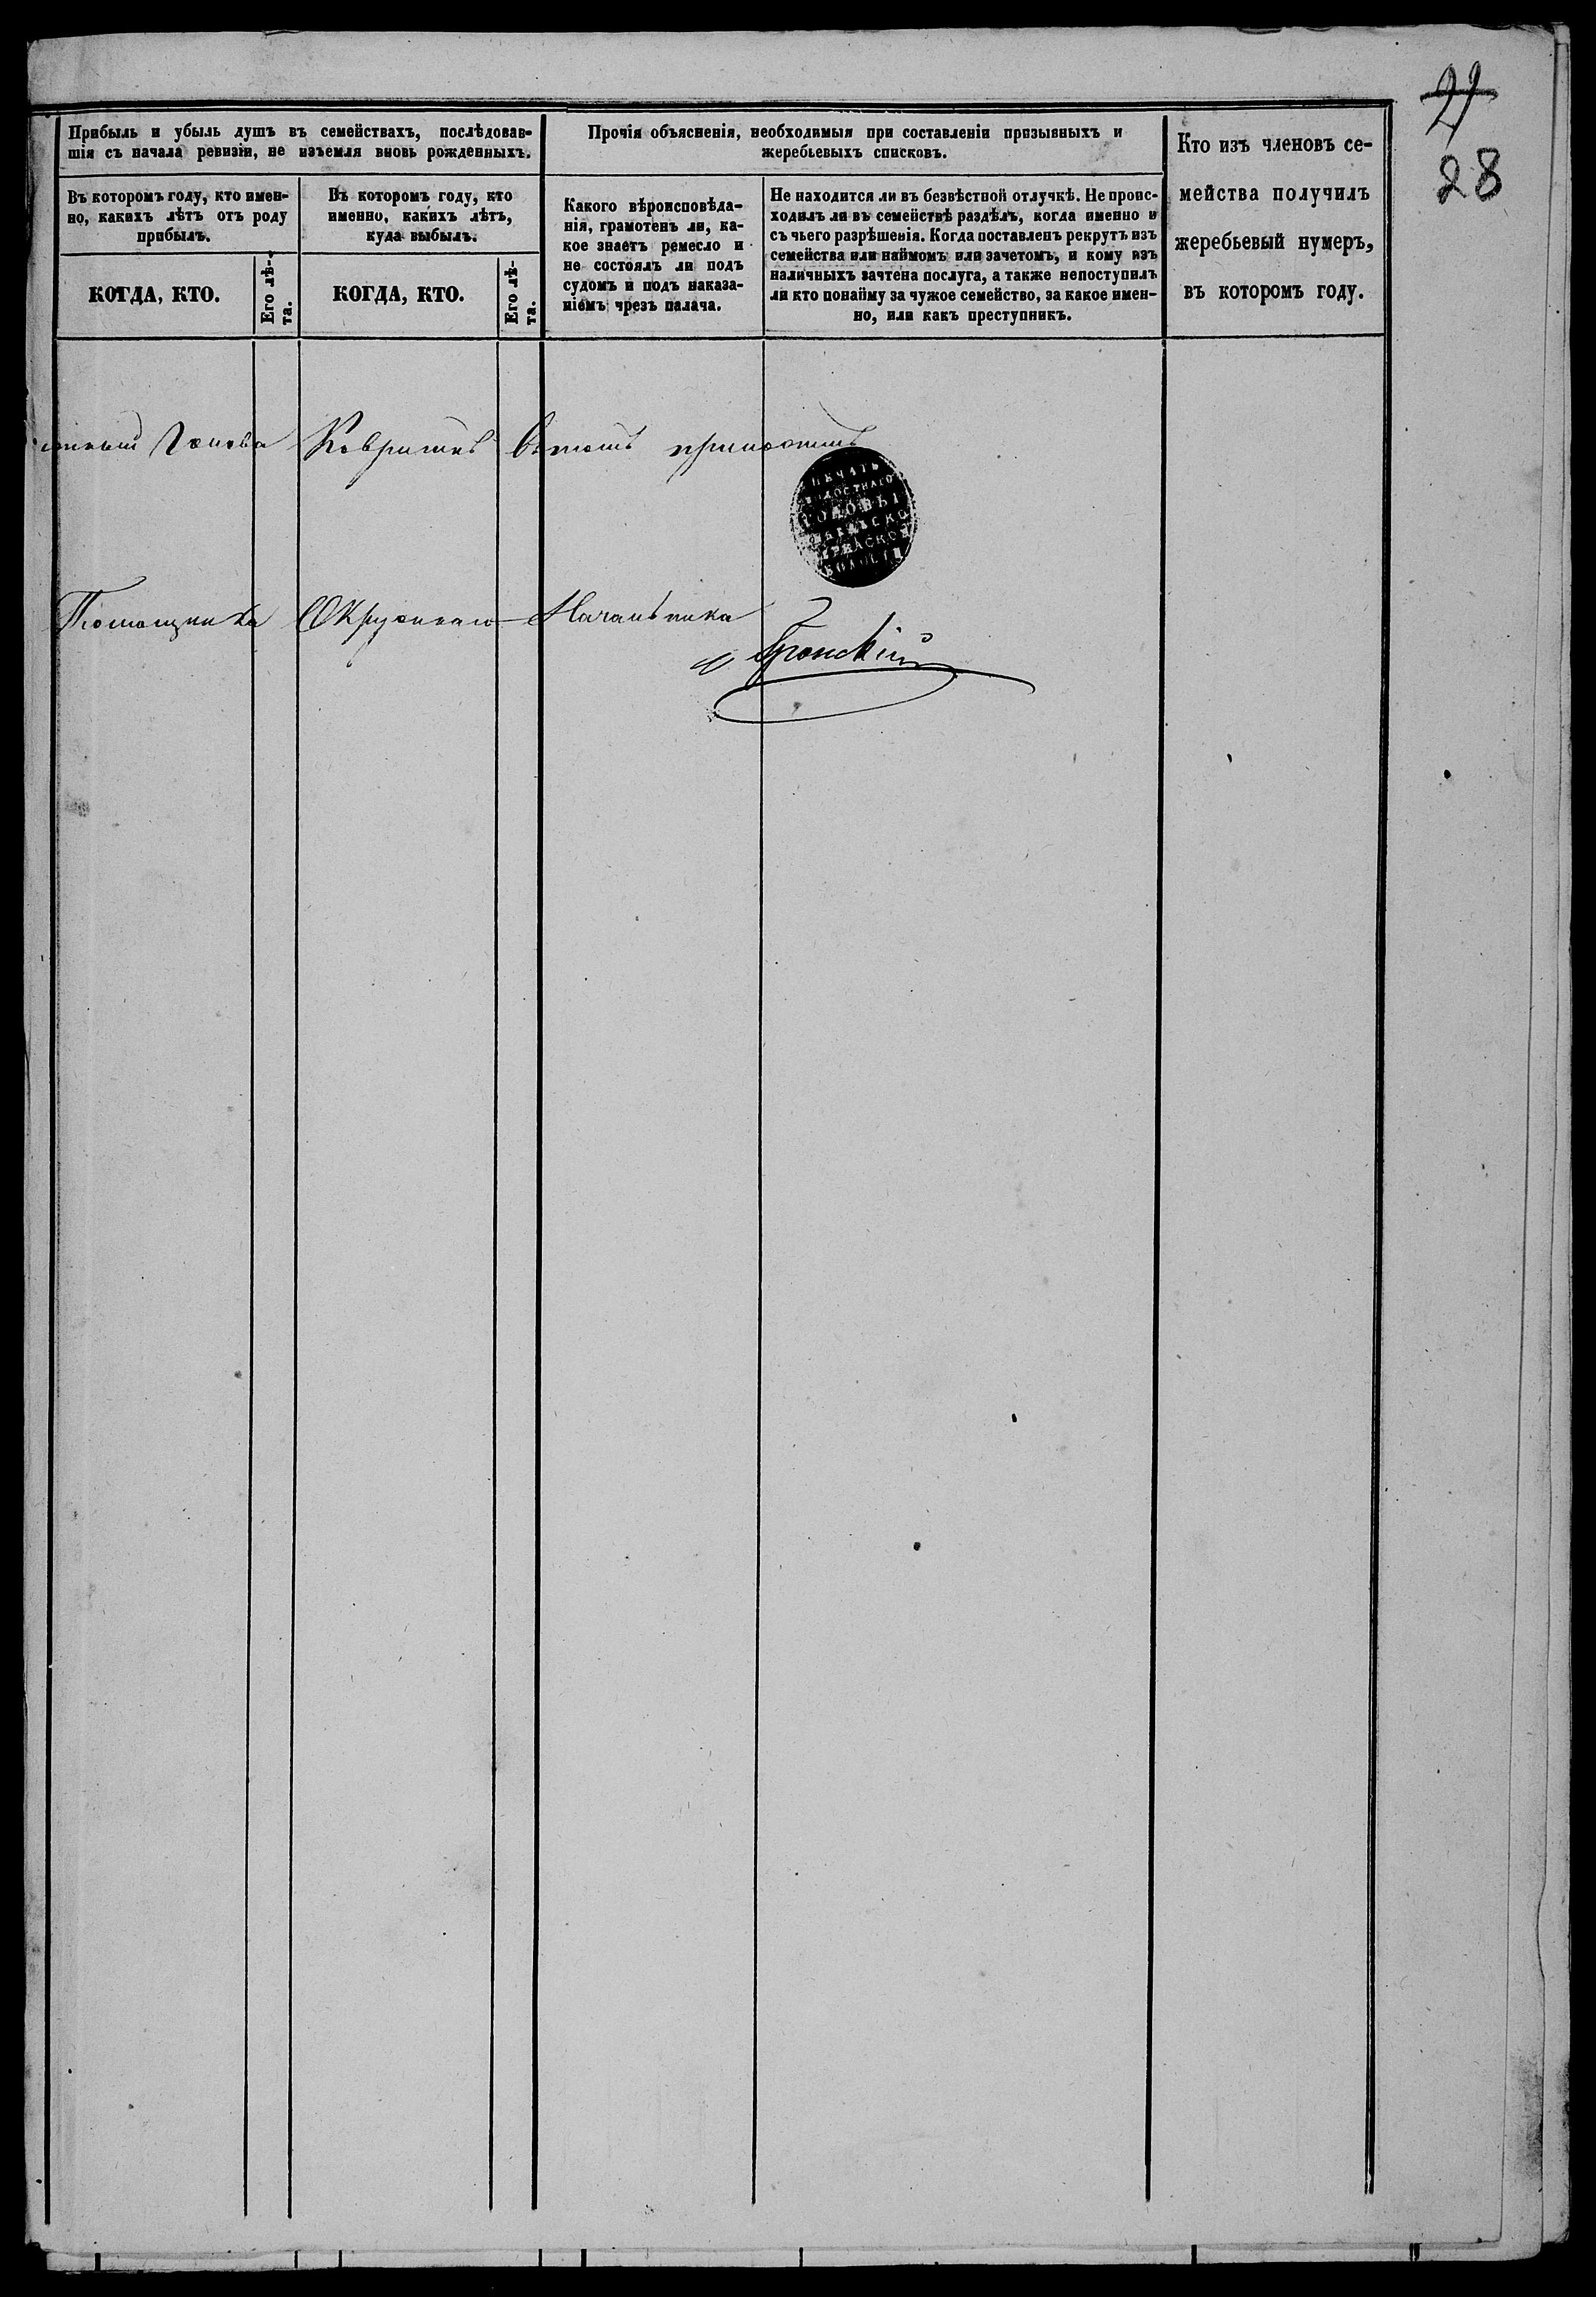 21
28
Прибыль и убыль душъ въ семействахъ, послѣдовав-
шія съ начала ревизіи, не изъемля вновь рожденныхъ.
Въ которомъ году, кто имен-
но, какихъ лѣтъ отъ роду
прибылъ.
КОГДА, КТО.
Его лѣ-
та.
Въ которомъ году, кто
именно, какихъ лѣтъ,
куда выбылъ.
КОГДА, КТО.
Его лѣ-
та.
Прочія объясненія, необходимыя при составленіи призывныхъ и
жеребьевыхъ списковъ.
Какого вѣроисповѣда-
нія, грамотенъ ли, ка-
кое знаетъ ремесло и
не состоялъ ли подъ
судомъ и подъ наказа-
ніемъ чрезъ палача.
Не находится ли въ безвѣстной отлучкѣ. Не проис-
ходилъ ли въ семействѣ раздѣлъ, когда именно и
съ чьего разрѣшенія. Когда поставленъ рекрутъ изъ
семейства или наймомъ или зачетомъ, и кому изъ
наличныхъ зачтена послуга, а также непоступилъ
ли кто понайму за чужое семейство, за какое имен-
но, или какъ преступникъ.
Кто изъ членовъ се-
мейства получилъ
жеребьевый нумеръ,
въ которомъ году.
Голова
ПЕЧАТЬ
ВОЛОСТНАГО
ГОЛОВЫ
ВОЛОСТИ
Помощника Окружнаго Начальника